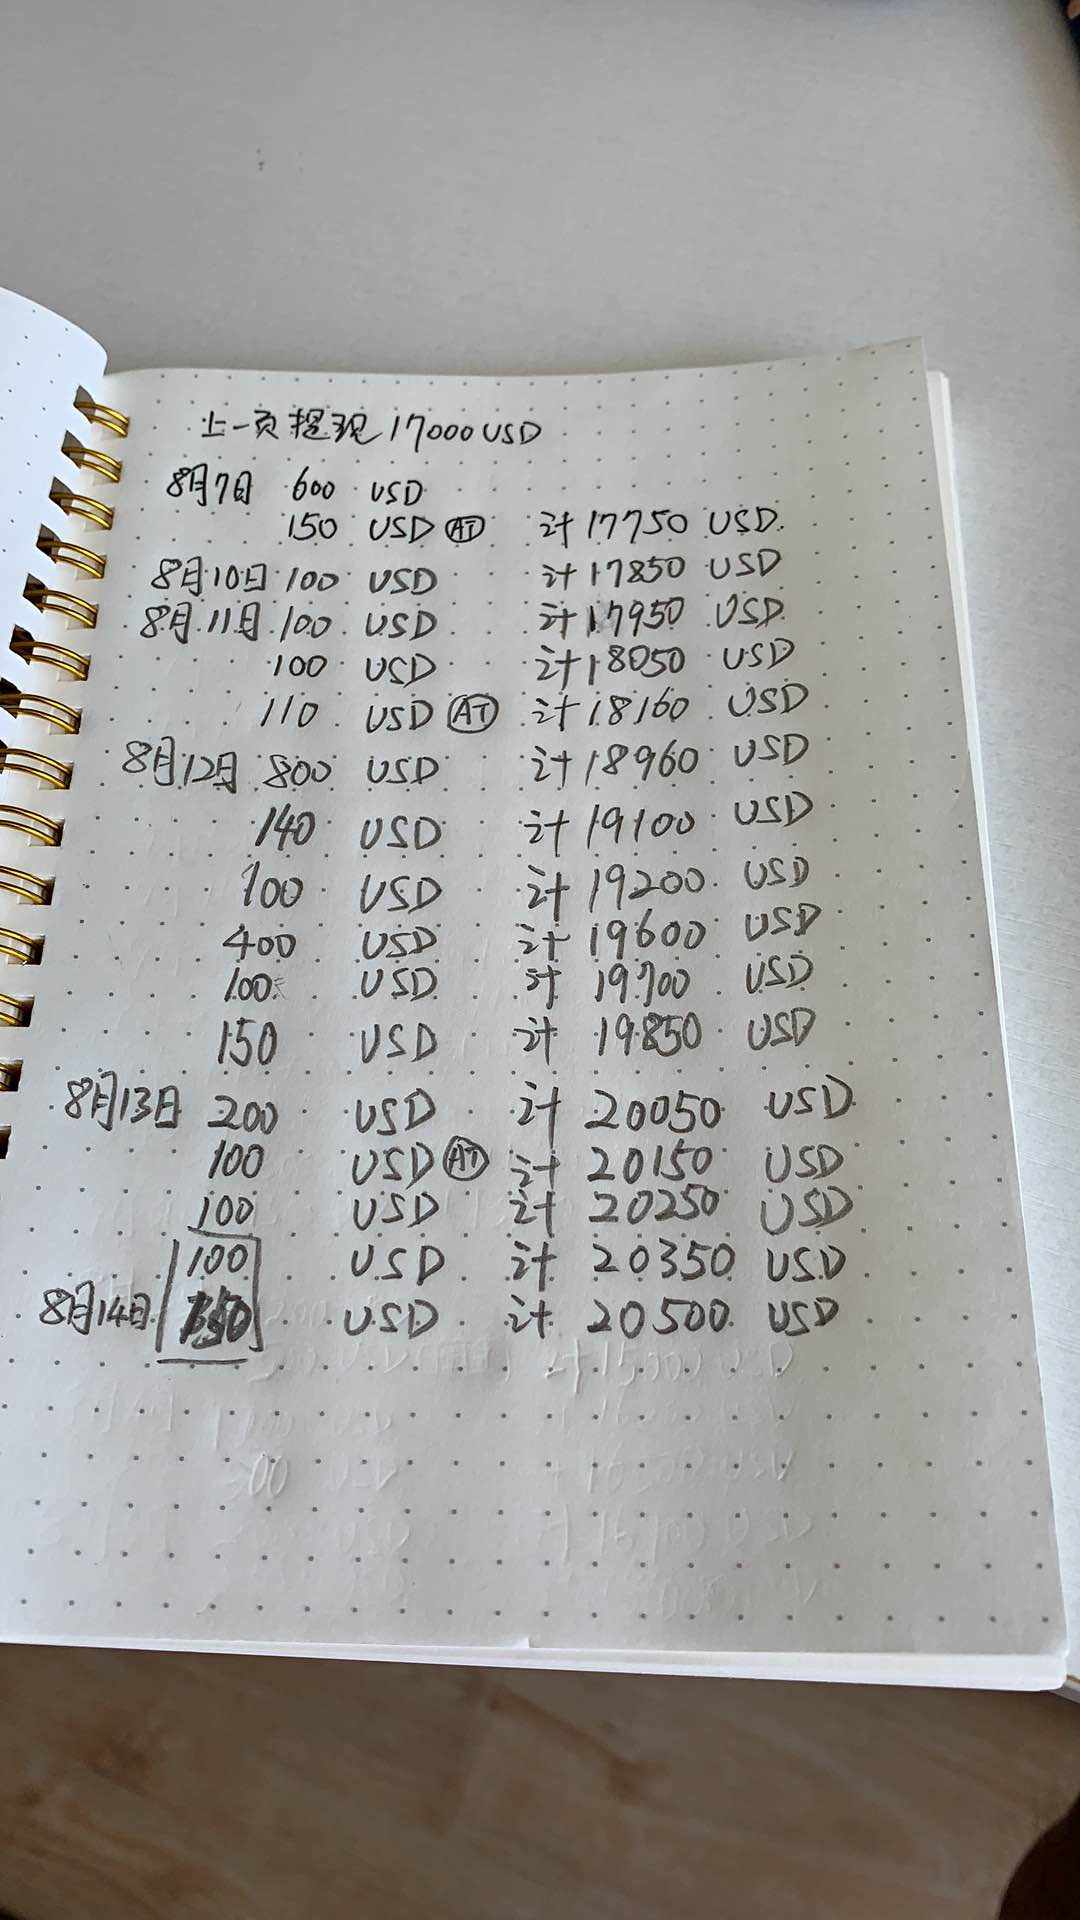 上一页提现17000USD
8月7日 600 USD
150 USD AT 计17750 USD
8月10日 100 USD 计17850 USD
8月11日 100 USD 计17950 USD
100 USD 计18050 USD
110 USD AT 计18160 USD
8月12日 800 USD 计18960 USD
140 USD 计19100 USD
100 USD 计19200 USD
400 USD 计19600 USD
100 USD 计19700 USD
150 USD 计19850 USD
8月13日 200 USD 计20050 USD
100 USD AT 计20150 USD
100 USD 计20250 USD
100 USD 计20350 USD
8月14日 150 USD 计20500 USD